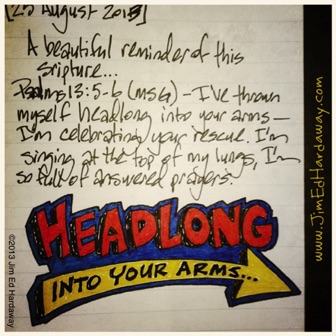 [25 August 2013]
A beautiful reminder of this
sripture...
Psalms 13:5-6 (msg) - I've thrown
myself headlong into your arms —
I'm celebrating your rescue. I'm
singing at the top of my lungs, I'm
so full of answered prayers.
HEADLONG
INTO YOUR ARMS...
©2013 Jim Ed Hardaway
www.JimEdHardaway.com